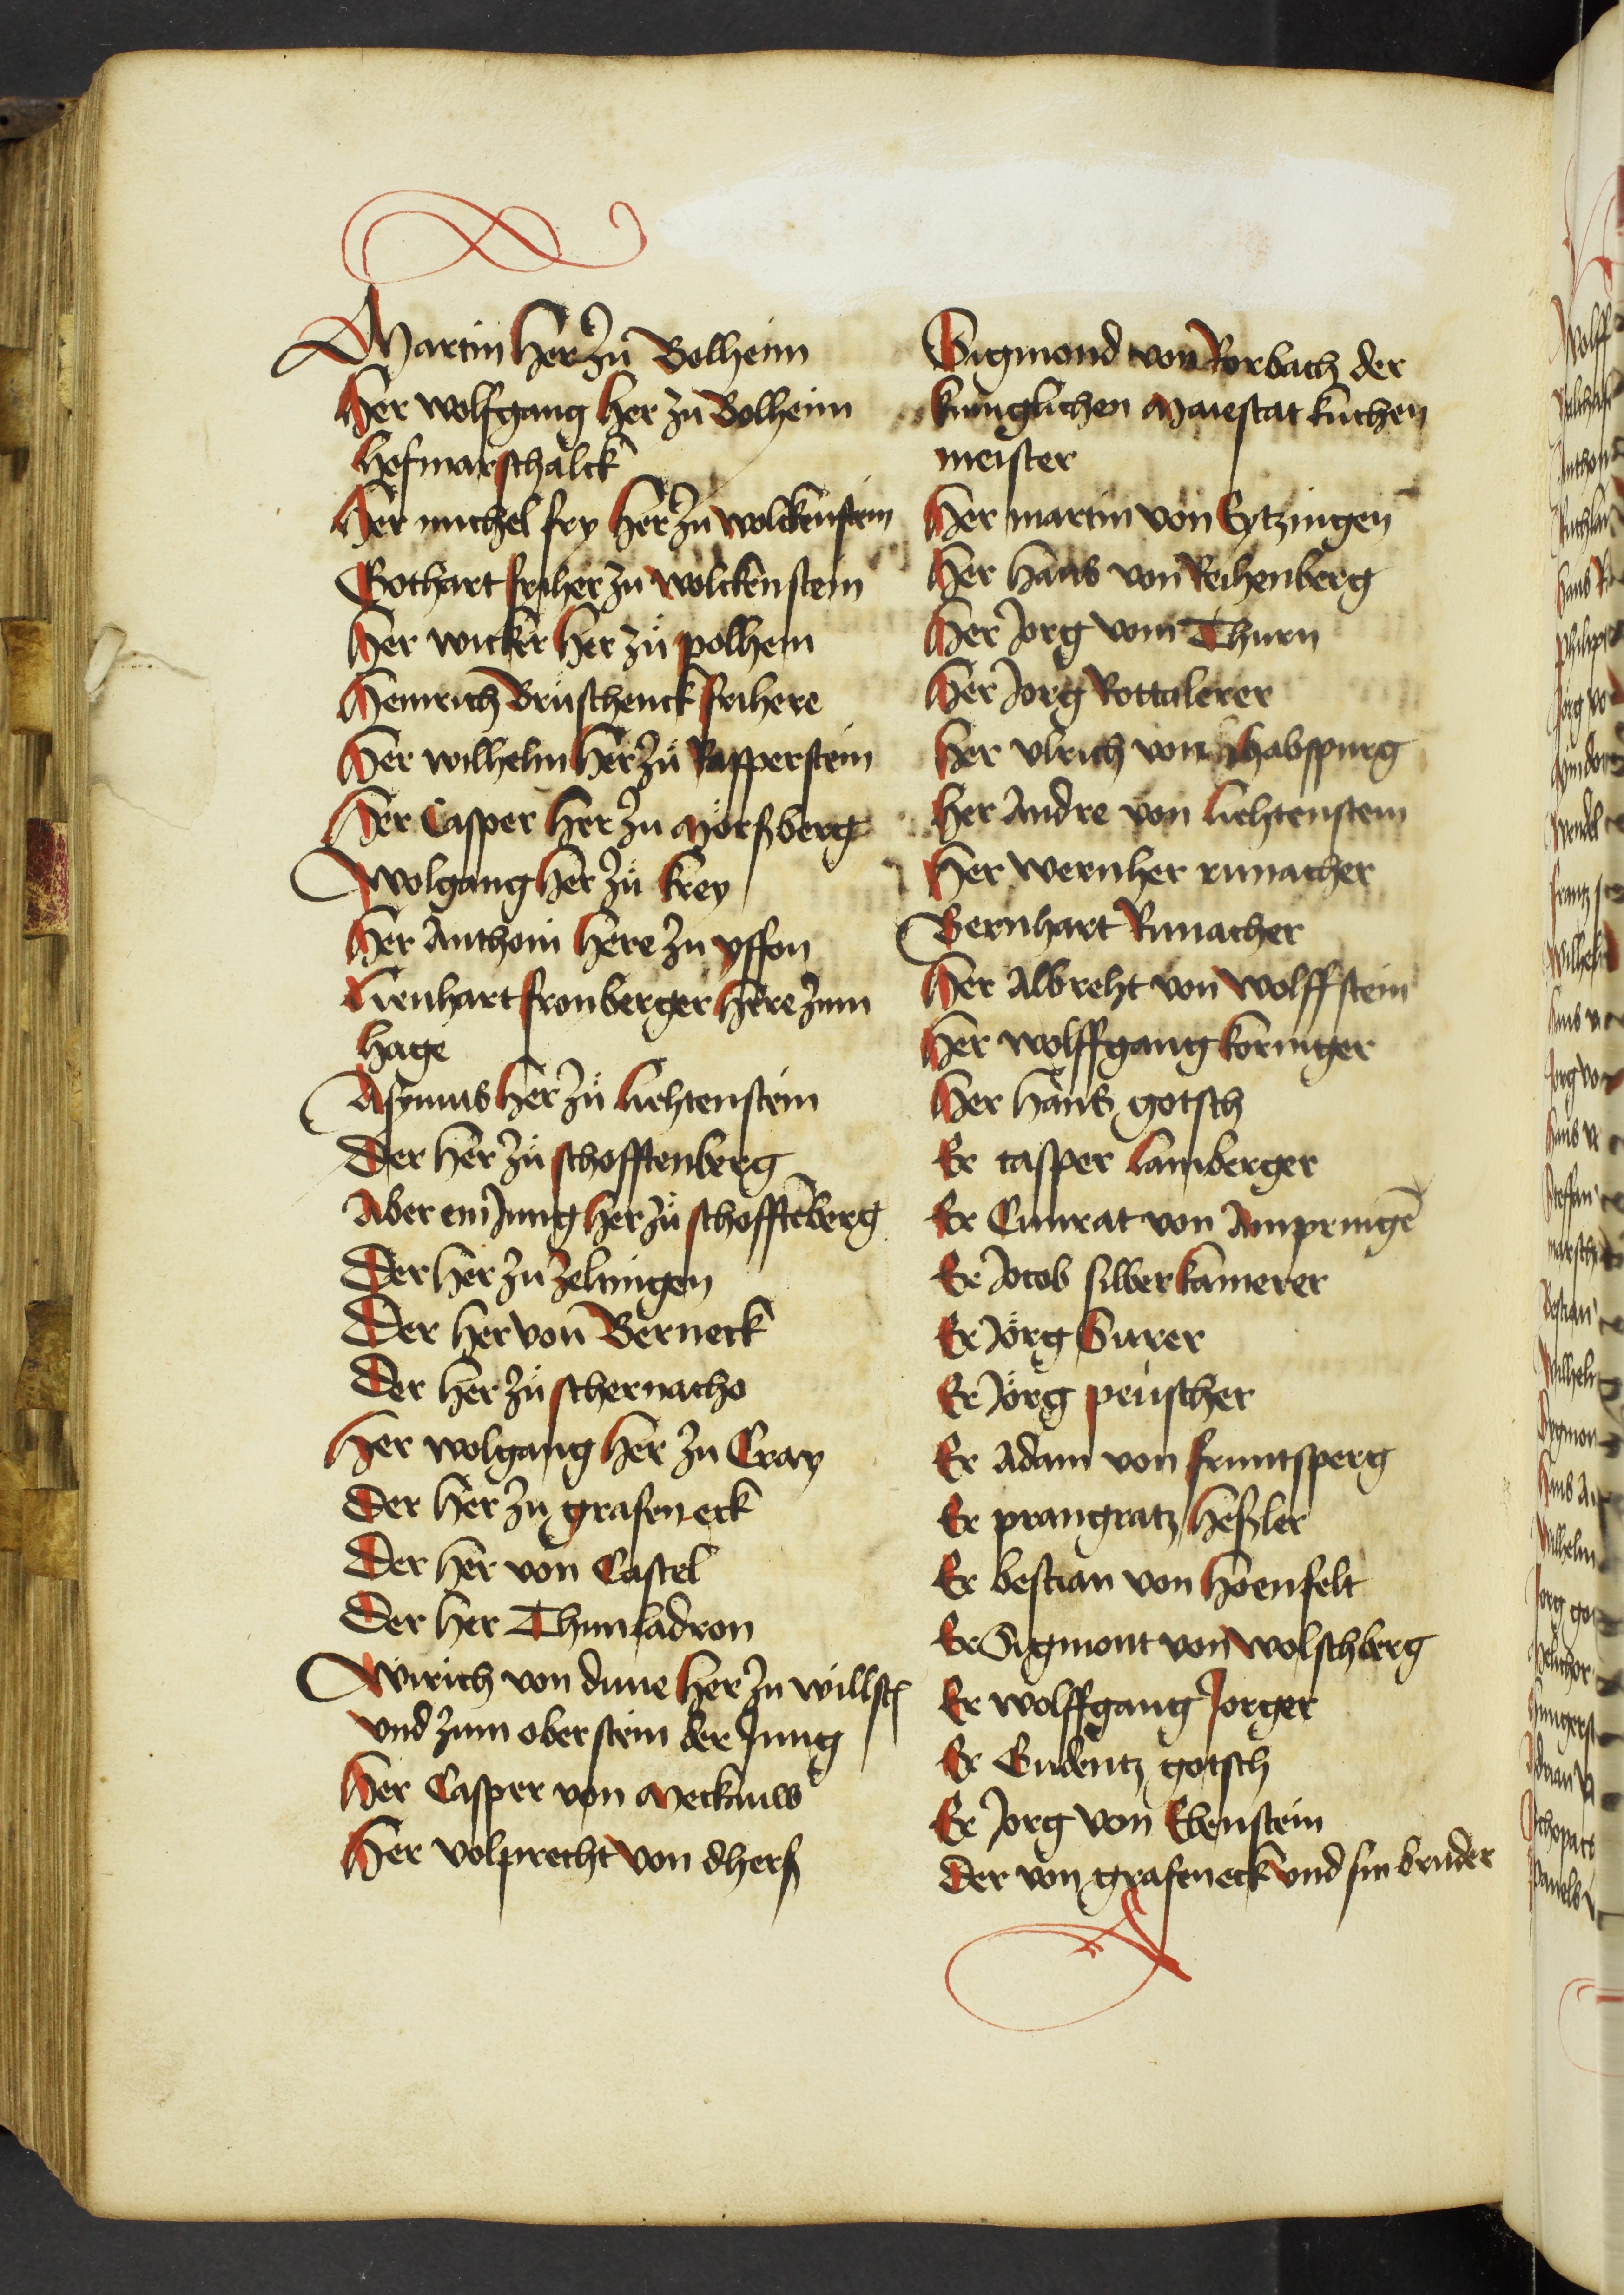 Martin Her zu Bolheim
Her wolfgang Her zu Bolheim
Hofmarschalck
Her michel fry Her zu wolckenstein
Gothart friher zu wolckenstein
Her wicker Her zu polhem
Heinrich Bruschenck frihere
Her wilhelm Her zu Rapperstein
Her Casper Her zu Mörsberg
Wolgang Her zu krey
Her Anthoni Here zu yffon
Lienhart fronberger Here zum
Hage
Asymus Her zu Liechtenstein
Der Her zu schofftenberg
Aber ein Jung Her zu schofftēberg
Der Her zu zeltingen
Der Her von Berneck
Der Her zu schernacho
Her wolgang Her zu Cray
Der Her zu grafeneck
Der Her von Castel
Der Her Thun ladron
Wirich von dune Her zu willst
vnd zum oberstein der Jung
Her Casper von Meckauw
Her volprecht von dhers
Sigmond von Rorbach der
kuniglichen Maiestat kuchen
meister
Her martin von Eytzingen
Her Hans von Reihenberg
Her Jorg vom Thurn
Her Jorg Rottalerer
Her vlrich von Habspurg
Her Andre von Liehtenstein
Her wernher runacher
Bernhart Runacher
Her Albreht von wolffstein
Her wolffgang koringer
Her Hans gotsch
Er casper Lamberger
Er Cunrat von Ampringē
Er Jocob silberkamerer
Er Jörg Surer
Er Jörg peuscher
Er Adam von fruntsperg
Er prangratz Heßler
Er bestian von Hoenfelt
Er Sigmont von wolschberg
Er wolffgang Jorger
Er Gudentz gotsch
Er Jorg von Ebenstein
Der von grafeneck vnd sin bruder